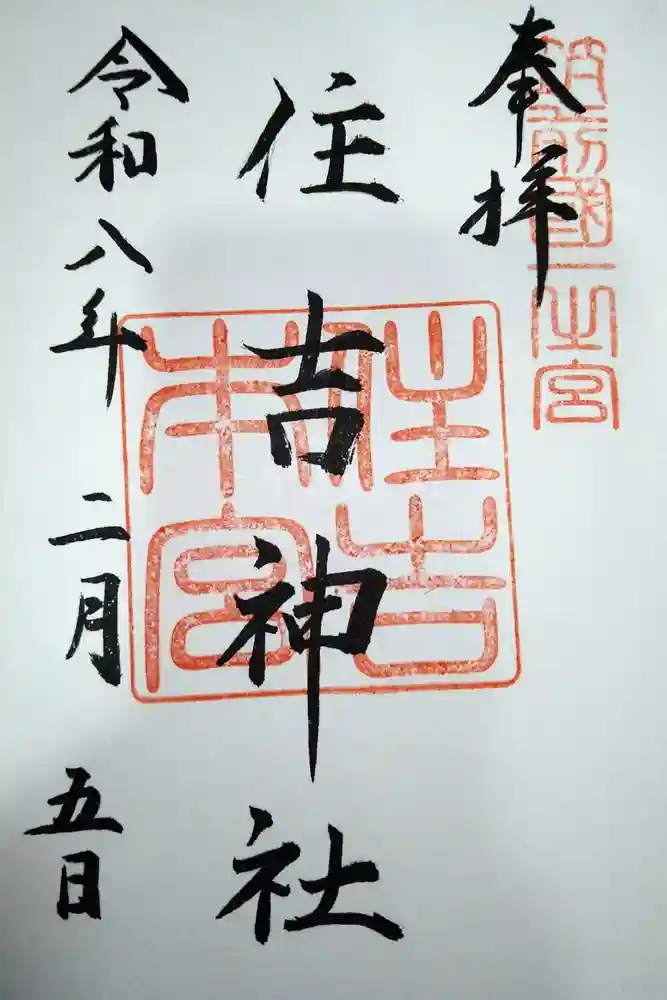 奉拝
筑前國一之宮
住吉神社
住吉本宮
令和八年二月五日